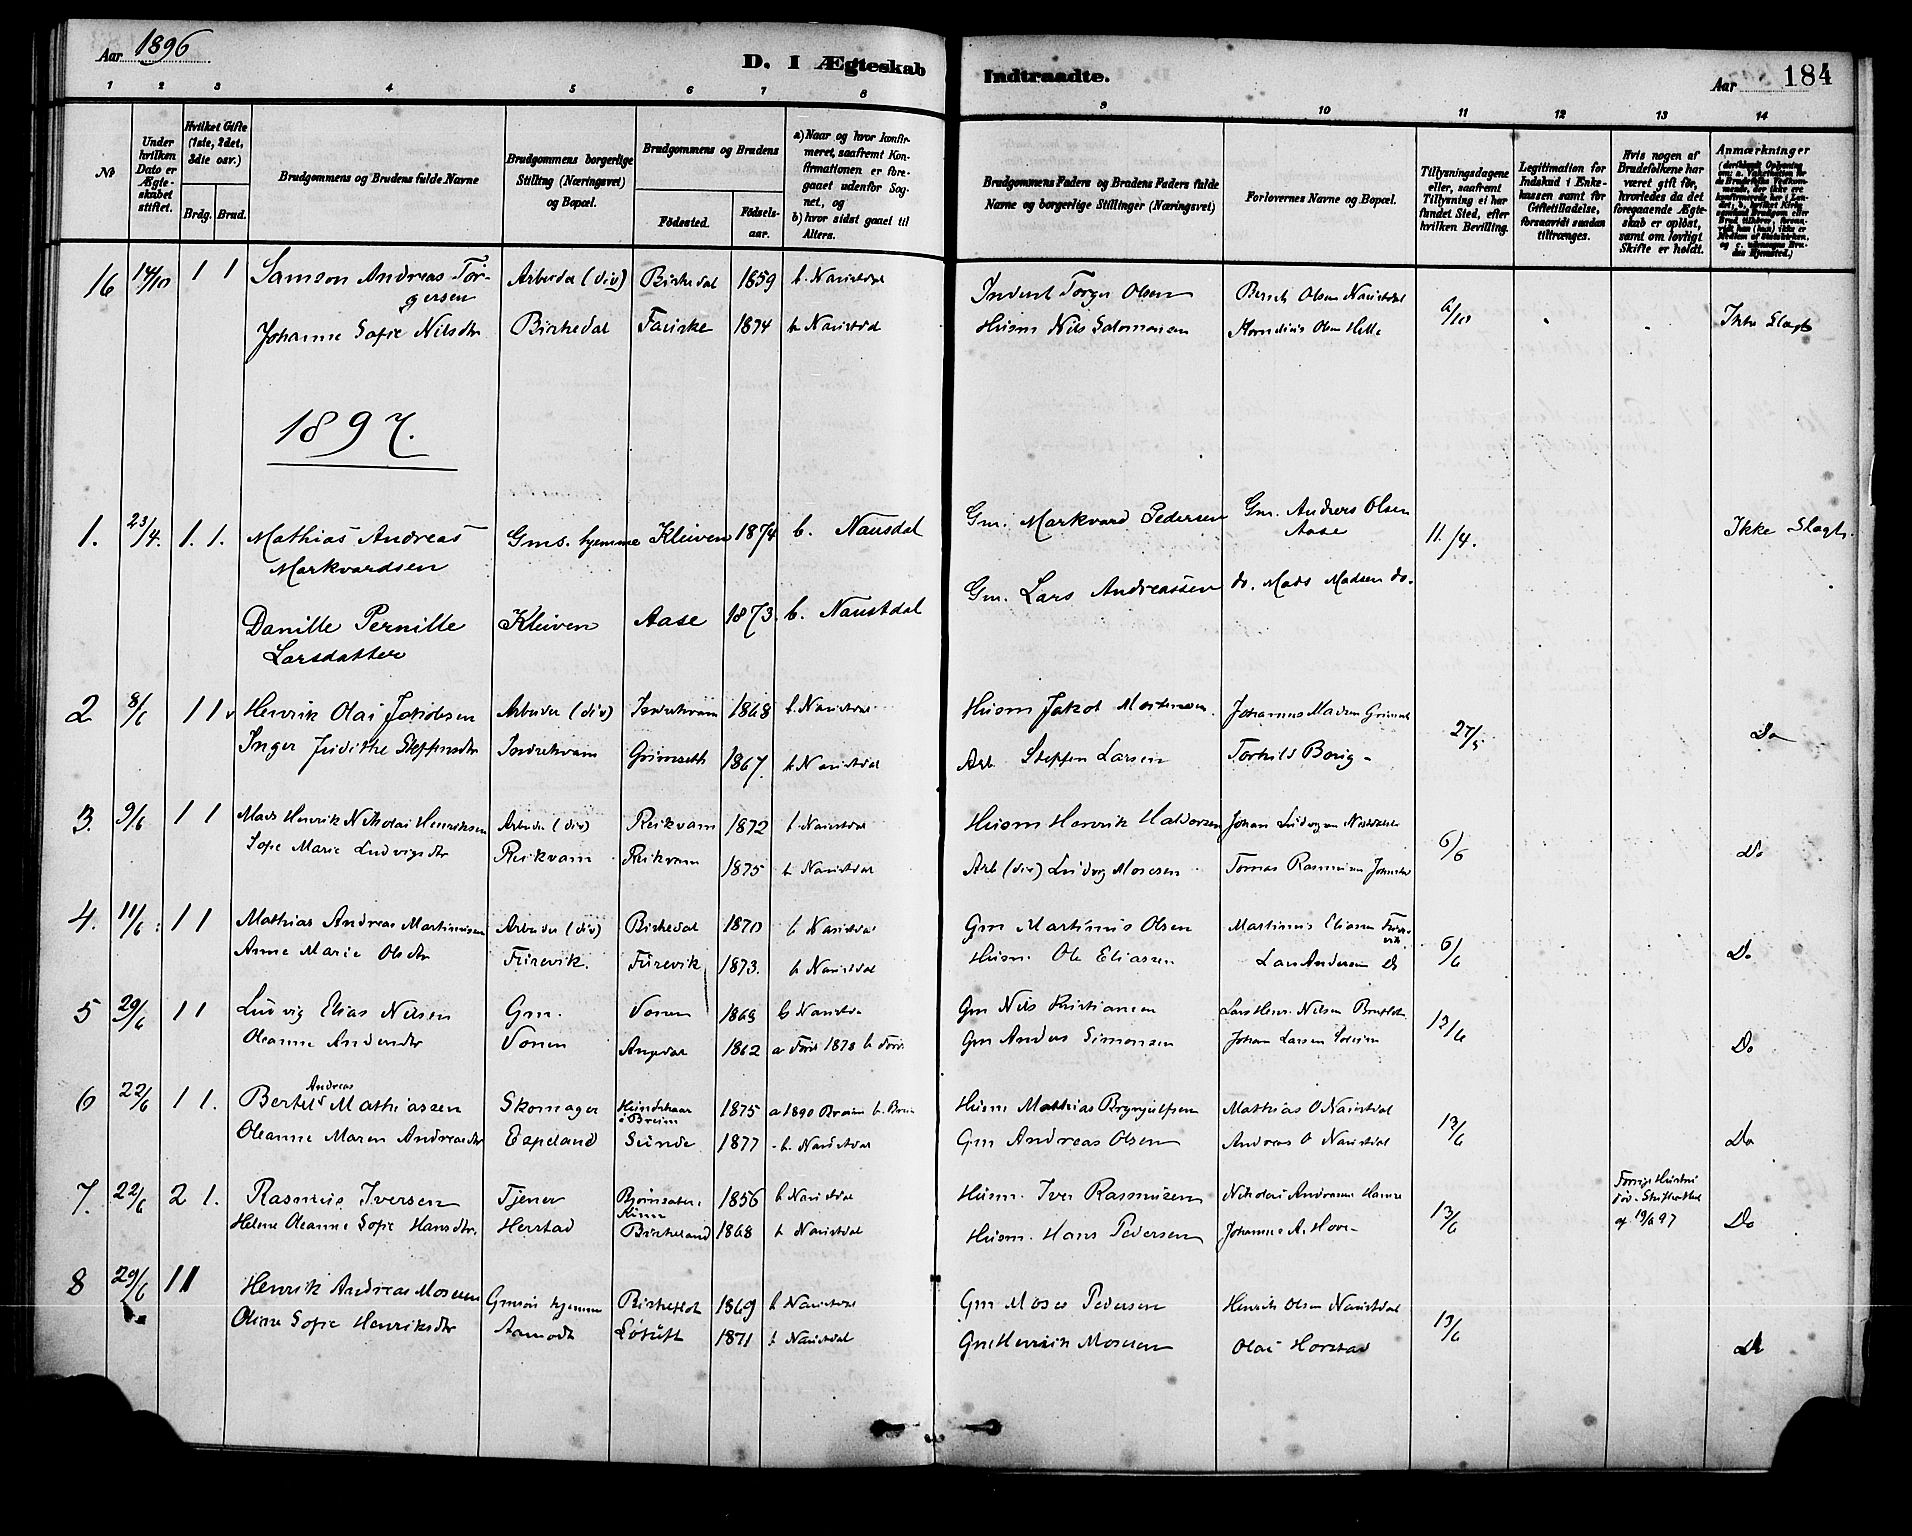 Aar 1896
D. I Ægteskab Indtraadte.
Aar 184
1 2 3 4 5 6 7 8 9 10 11 12 13 14
No
Under hvilken Dato er Ægteskabet stiftet.
Hvilket Gifte (1ste, 2det, 3die osv.)
Brdg. Brud.
Brudgommens og Brudens fulde Navne
Brudgommens borgerlige Stilling (Næringsvei) og Bopæl.
Brudgommens og Brudens
Fødested. Fødselsaar.
a) Naar og hvor konfirmeret, saafremt Konfirmationen er foregaaet udenfor Sognet, og
b) hvor sidst gaaet til Alters.
Brudgommens Faders og Brudens Faders fulde Navne og borgerlige Stillinger (Næringsvei)
Forlovernes Navne og Bopæl.
Tillysningsdagene eller, saafremt Tillysning ei har fundet Sted, efter hvilken Bevilling.
Legitimation for Indskud i Enkekassen samt for Giftetilladelse, forsaavidt saadan tiltrænges.
Hvis nogen af Brudefolkene har været gift før, hvorledes da det foregaaende Ægteskab er opløst, samt om lovligt Skifte er holdt.
Anmærkninger
16 14/10 1 1 Samson Andreas Torgersen Arbeider (div) Birkedal 1859 b. Naustdal Inderst Torger Olsen Bernt Olsen Naustdal 6/10 Ikke Slægt
Johanne Sofie Nilsdtr Birkedal Fauske 1874 b Naustdal Husm Nils Salomonsen Kornelius Olsen Helle
1897.
1. 23/4. 1. 1. Mathias Andreas Markvardsen Gms. hjemme Kleiven 1874 b. Nausdal Gm. Markvard Pedersen Gm. Anders Olsen Aase 11./4. Ikke Slægt.
Danille Pernille Larsdatter Kleiven Aase 1873. b. Naustdal Gm. Lars Andreassen do. Mads Madsen do.
2 8/6 1 1 Henrik Olai Jakobsen Arbeider (div) Indrekvam 1868 b. Naustdal Husm Jakob Mortensen Johannes Madsen 27/5 Do
Inger Judithe Steffensdtr Indrekvam Grimseth 1867. b Naustdal Arb Steffen Larsen Torkild Borig
3. 9/6 1 1 Mads Henrik Nikolai Henriksen Arbeider (div) Reikvam 1872 b Naustdal Husm Henrik Haldorsen Johan Ludvigsen 6/6 Do
Sofie Marie Ludvigsdtr Reikvam Reikvam 1875 b Naustdal Arb (div) Ludvig Mosesen Tomas Rasmussen
4. 11/6 1 1 Mathias Andreas Martinussen Arbeider (div) Birkedal 1870 b Naustdal Gm Martinus Olsen Martinus Eliassen Furevik 6/6 Do
Anne Marie Olsdtr Furevik. Furevik 1873. b Naustdal Husm. Ole Eliassen Lars Andersen Do
5 29/6 1 1 Ludvig Elias Nilsen Gm. Vonen 1869 b Naustda Gm Nils Kristiansen Lars Henr. Nilsen 13/6
Oleanne Andersdtr Vonen Angedal 1862 a Førde 1878 b Førde Gm Anders Simonsen Johan Larsen Do
6 22/6 1 1. Bertel Andreas Mathiassen Skomager Hundskaar Breim 1875 a 1890 Breim b. Breim Husm Mathias Brynjulfsen Mathias O Naustdal 13/6
Oleanne Maren Andreasdtr Espeland Sunde 1877 b. Naustdal Gm Andreas Olsen Andreas O Naustdal Do
7. 22/6 2 1. Rasmus Iversen Tjener Kinn 1856 b Naustdal Husm. Iver Rasmussen Nikolai Andreassen 13/6 Forrige Hustru død. Skifteattest af 19/6 97
Helene Oleanne Sofie Hansdtr. Herstad Birkeland 1868 b Naustdal Husm. Hans Pedersen Johannes A. Hove Do
8 29/6 1 1 Henrik Andreas Mosesen Gmsøn hjemme 1869 b Naustdal Gm Moses Pedersen Henrik Olsen Naustdal 13/6
Oline Sofie Henriksdtr Aamodt Løtuft 1871 b Naustdal Gm Henrik Mosesen Olai Horstad Do